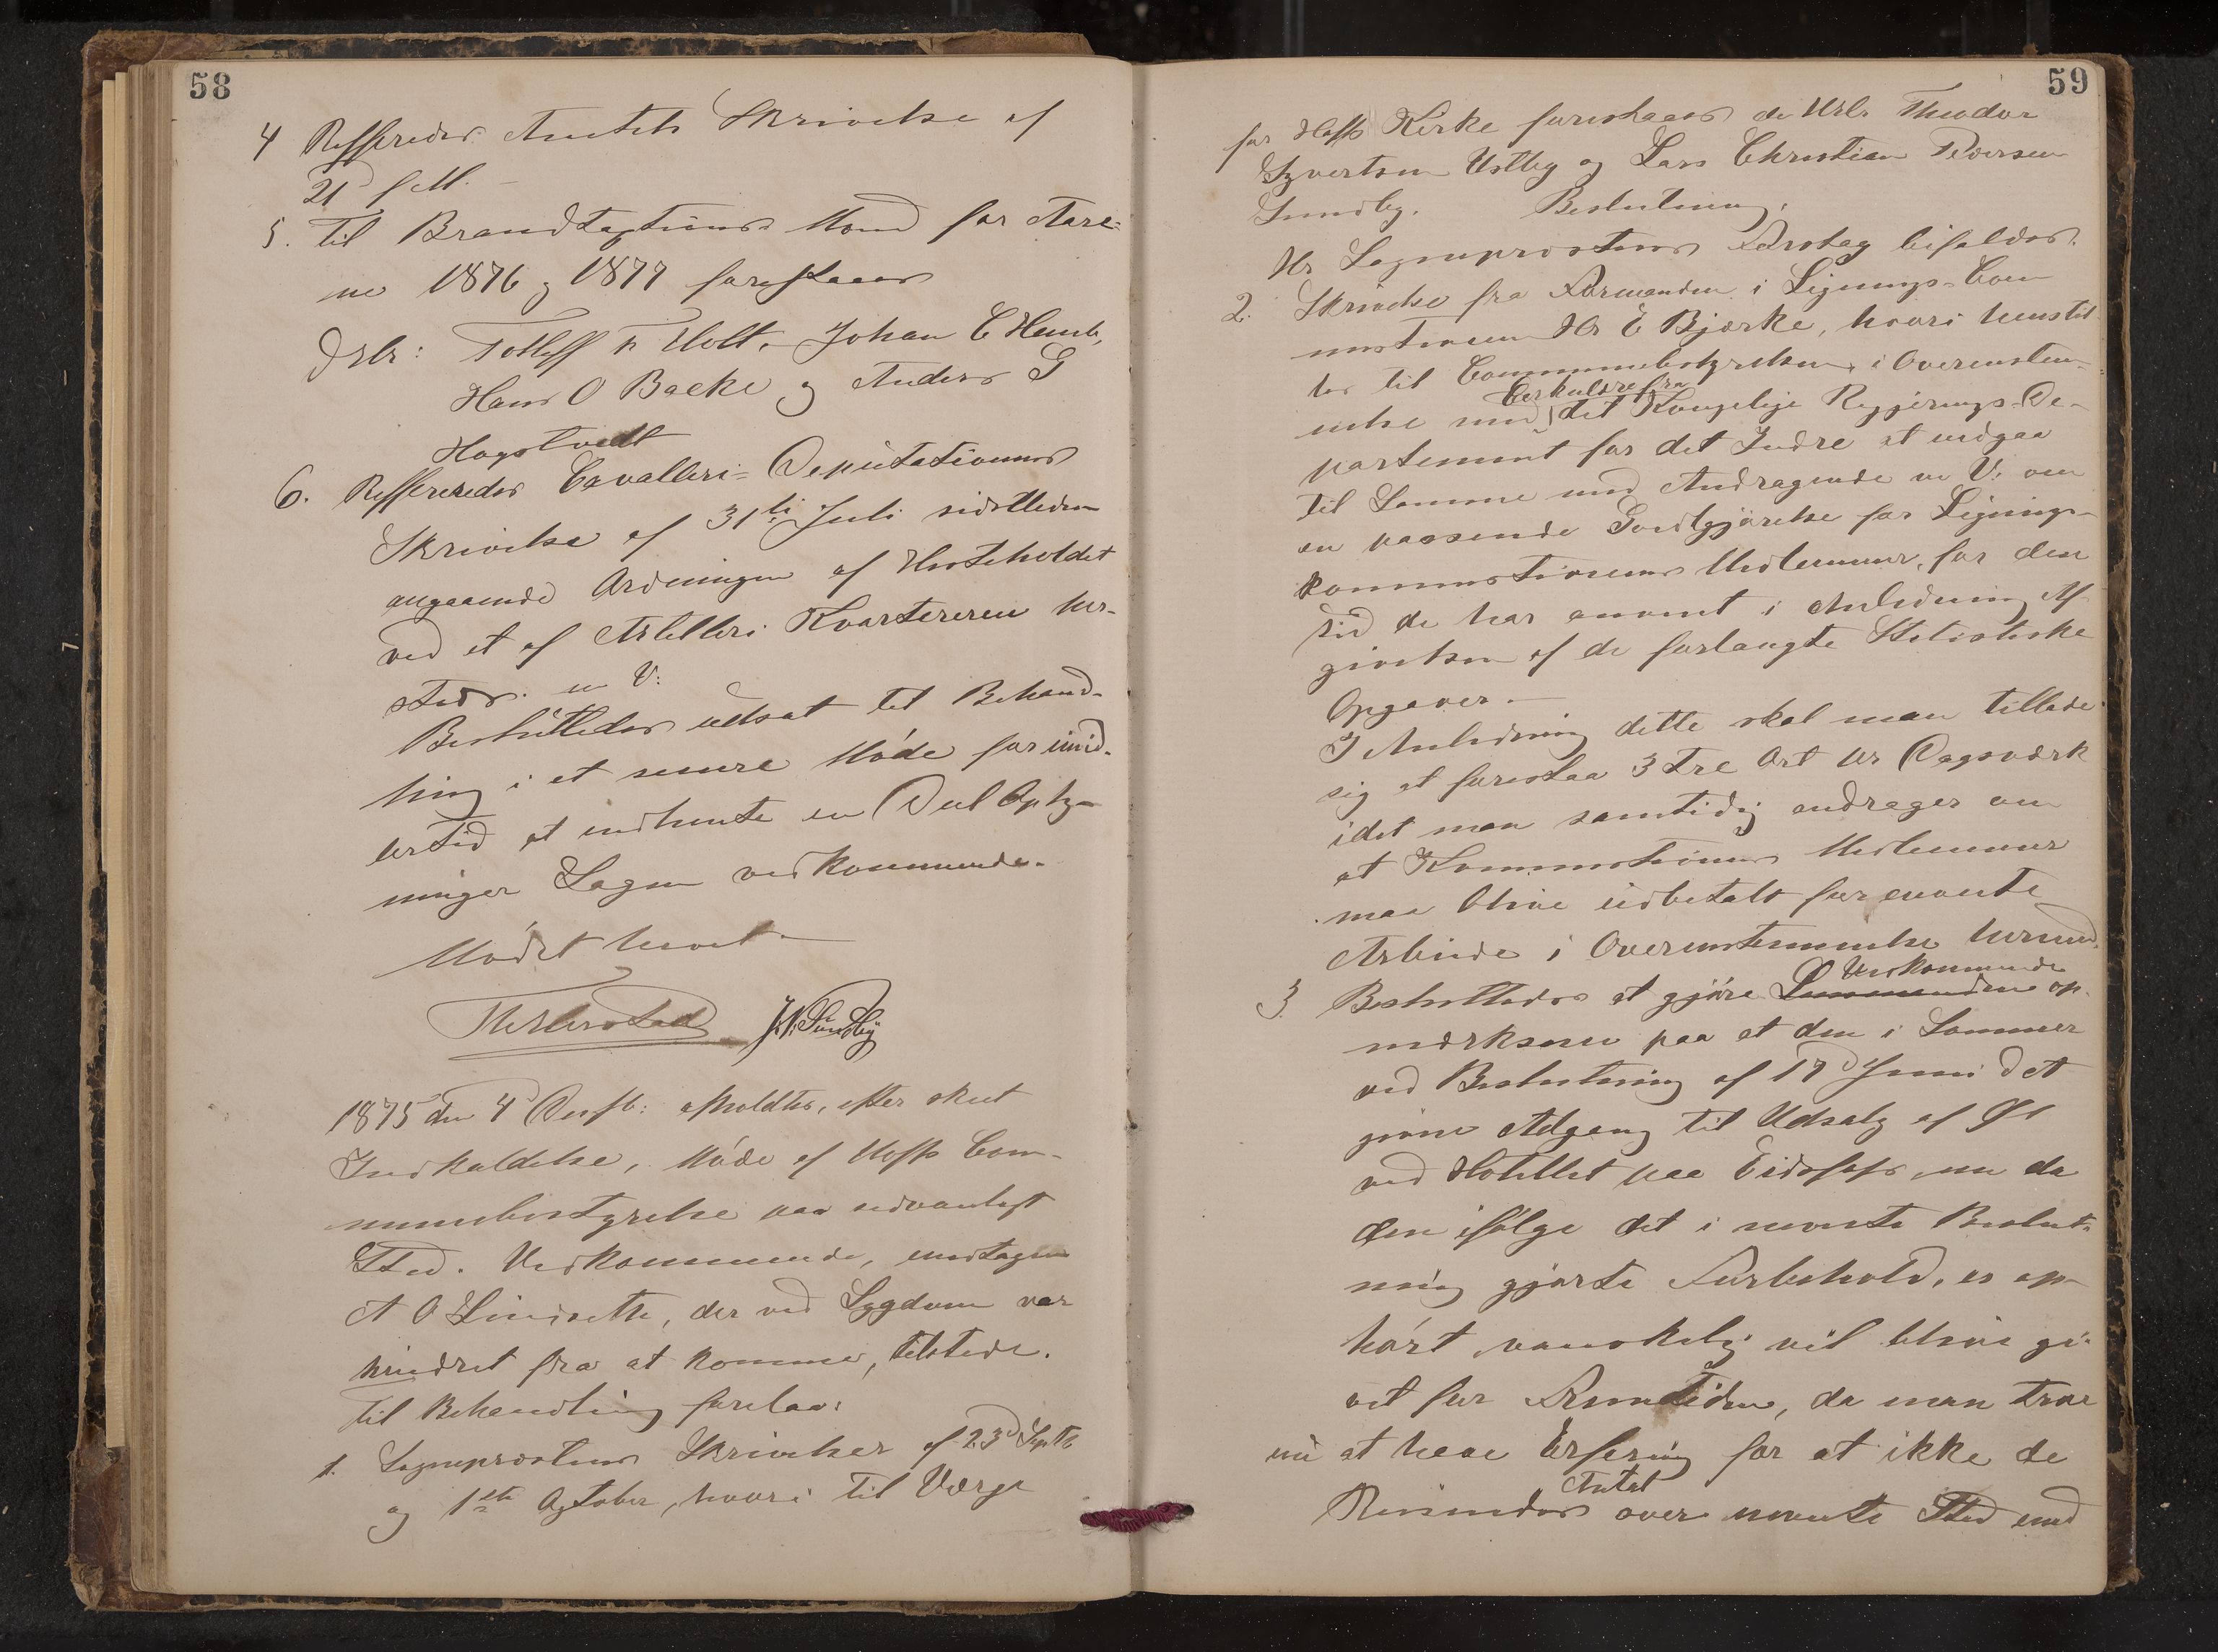 58
4 Refferedes Amtets Skrivelse af
21 f. M.
5. Til Brandtaxtions Mænd for Aare-
ne 1876 og 1877 foreslaaes
DHr: Tollef Holt, Johan C
Hans O Bække og Anders G
Hagstvedt
6. Reffereredes Cavalleri-Deputationens
Skrivelse af 31te Juli sidstleden
angaaende Ordningen af Hesteholdet
ved et af Artilleri Kvartererne her-
steds. m V:
Besluttedes udsat til Behand-
ling i et senere Møde for imid-
lertid at indhente en Deel Oplys-
ninger Sagen vedkommende.
Mødet hævet.
J. N. Sundby
1875 den 4d Decbr: afholdtes, efter skeet
Indkaldelse, Møde af Hoffs Com-
munebestyrelse paa sædvanligt
Sted. Vedkommende, undtagen
A O Lindsette, der ved Sygdom var
hindret fra at komme, tilstede.
Til Behandling forelaa:
1. Sogneprestens Skrivelser af 23d Septb
og 1ste October, hvori til Værge
59
for Hoffs Kirke foreslaaes de Hrr. Theodor
Syvertsen Ustby og Lars Christian Pedersen
Sundby. Beslutning.
Hr Sogneprestens Forslag bifaldes.
2. Skrivelse fra Formanden i Lignings-Com
missionen Hr E Bjerke, hvori henstil-
les til Communebestyrelsen, i Overensstem-
melse med Cirkulære fra det Kongelige Regjerings-De-
partement for det Indre at indgaa
til Samme med Andragende m V: om
en passende Godtgjørelse for Lignings-
kommissionens Medlemmer, for den
Tid de har anvendt i Anledning Af-
givelsen af de forlangte Statistiske
Opgaver.
I Anledning dette skal man tillade
sig at foreslaa 3 tre Ort pr Dagsværk
idet man samtidig andrager om
at Kommissionens Medlemmer
maa blive udbetalt for nævnte
Arbeide i Overensstemmelse hermed.
3. Besluttedes at gjøre Vedkommende op-
mærksom paa at den i Sommer
ved Beslutning af 19d Juni d A
givne Adgang til Udsalg af Øl
ved Hotellet paa Eidsfoss, nu da
den ifølge det i nævnte Beslut-
ning gjorte Forbehold, er op-
hørt vanskelig vil blive gi-
vet for Fremtiden, da man tror
nu at have Erfaring for at ikke de
Reisendes Antal over nævnte Sted med